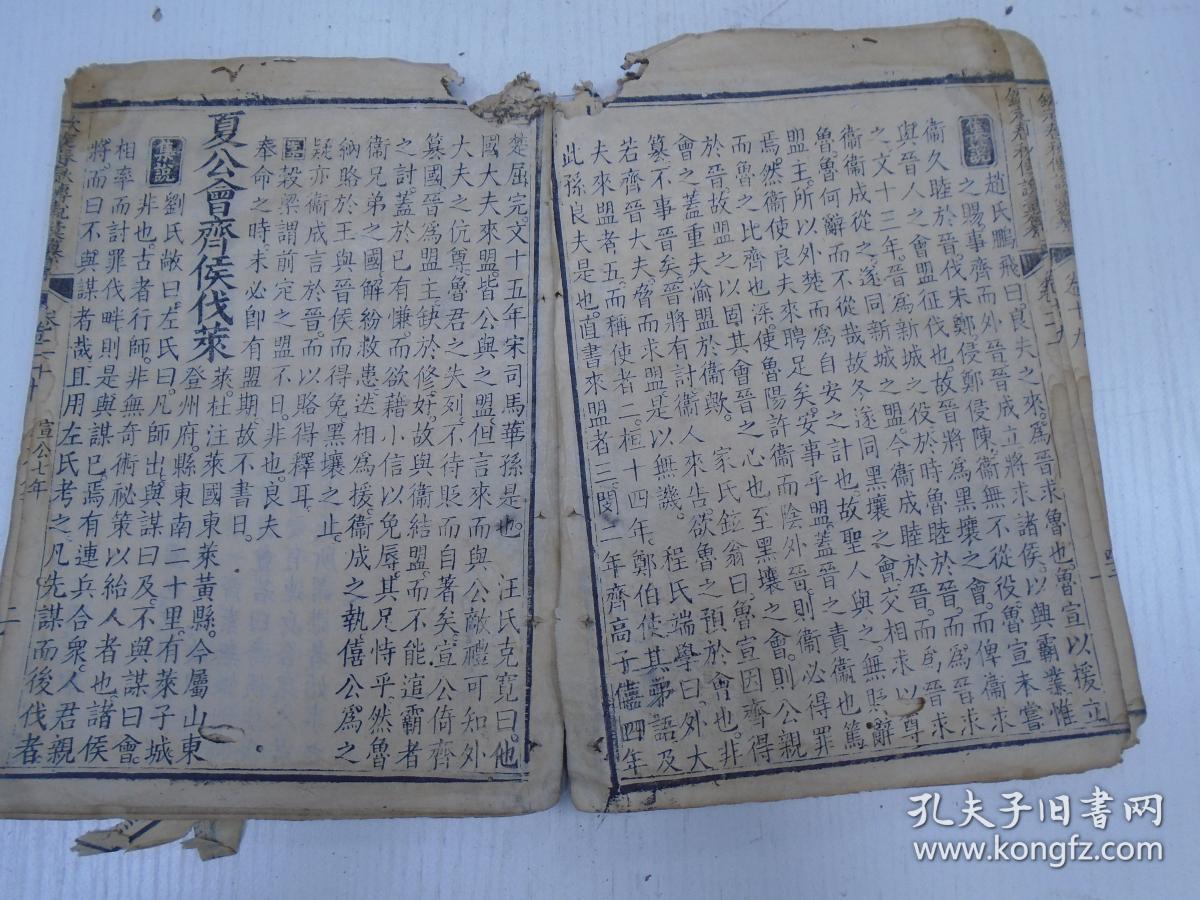 集說
趙氏鵬飛曰良夫之來為晉求魯也魯宣以援立
之賜事齊而外晉晉成立將求諸侯以興霸業惟
衞久睦於晉伐宋鄭侵鄭侵陳衞無不從役魯宣未嘗
與晉人之會盟征伐也故晉將為黑壤之會而俾衞求
之文十三年晉為新城之役於時魯睦於晉而為晉求
衞衞成從之遂同新城之盟今衞成睦於晉而為晉求
魯魯何辭而不從哉故冬遂同黑壤之會交相求以尊
盟主所以外楚而為自安之計也故聖人與之無貶辭
焉然衞侯使良夫來聘足矣安事乎盟蓋晉之責衞也篤
而魯之比齊也深使魯陽許衞而陰外晉則衞必得罪
於晉故盟之以固其會晉之心也至黑壤之會則公親
會之蓋重夫渝盟於衞歟 家氏鉉翁曰魯宣因齊得
篡不事晉矣晉將有討衞人來告欲魯之預於會也非
若齊晉大夫脅而求盟是以無譏 程氏端學曰外大
夫來盟者五而稱使者二桓十四年鄭伯使其弟語及
此孫良夫是也直書來盟者三閔二年齊高子僖四年
楚屈完文十五年宋司馬華孫是也 汪氏克寬曰他
國大夫來盟皆公與之盟但言來而與公敵禮可知外
大夫之伉尊魯君之失列不待貶而自著矣宣公倚齊
篡國晉為盟主缺於修好故與衞結盟而不能逭霸者
之討蓋於已有慊而欲藉小信以免辱其足恃乎然魯
衞兄弟之國解紛救患迭相為援衞成之執僖公為之
納賂於王與晉侯而得免黑壤之止
疑亦衞成言於晉而以賂得釋耳
穀梁謂前定之盟不日非也良夫
奉命之時未必卽有盟期故不書日
夏公會齊侯伐萊
萊杜注萊國東萊黃縣今屬山東
登州府縣東南二十里有萊子城
集說
劉氏敞曰左氏曰凡師出與謀曰及不與謀曰會
非也古者行師非無奇術祕策以紿人者也諸侯
相率而討罪伐畔則是與謀已焉有連兵合衆人君親
將而曰不與謀者哉且用左氏考之凡先謀而後伐者
宣公七年
孔夫子旧书网
www.kongfz.com